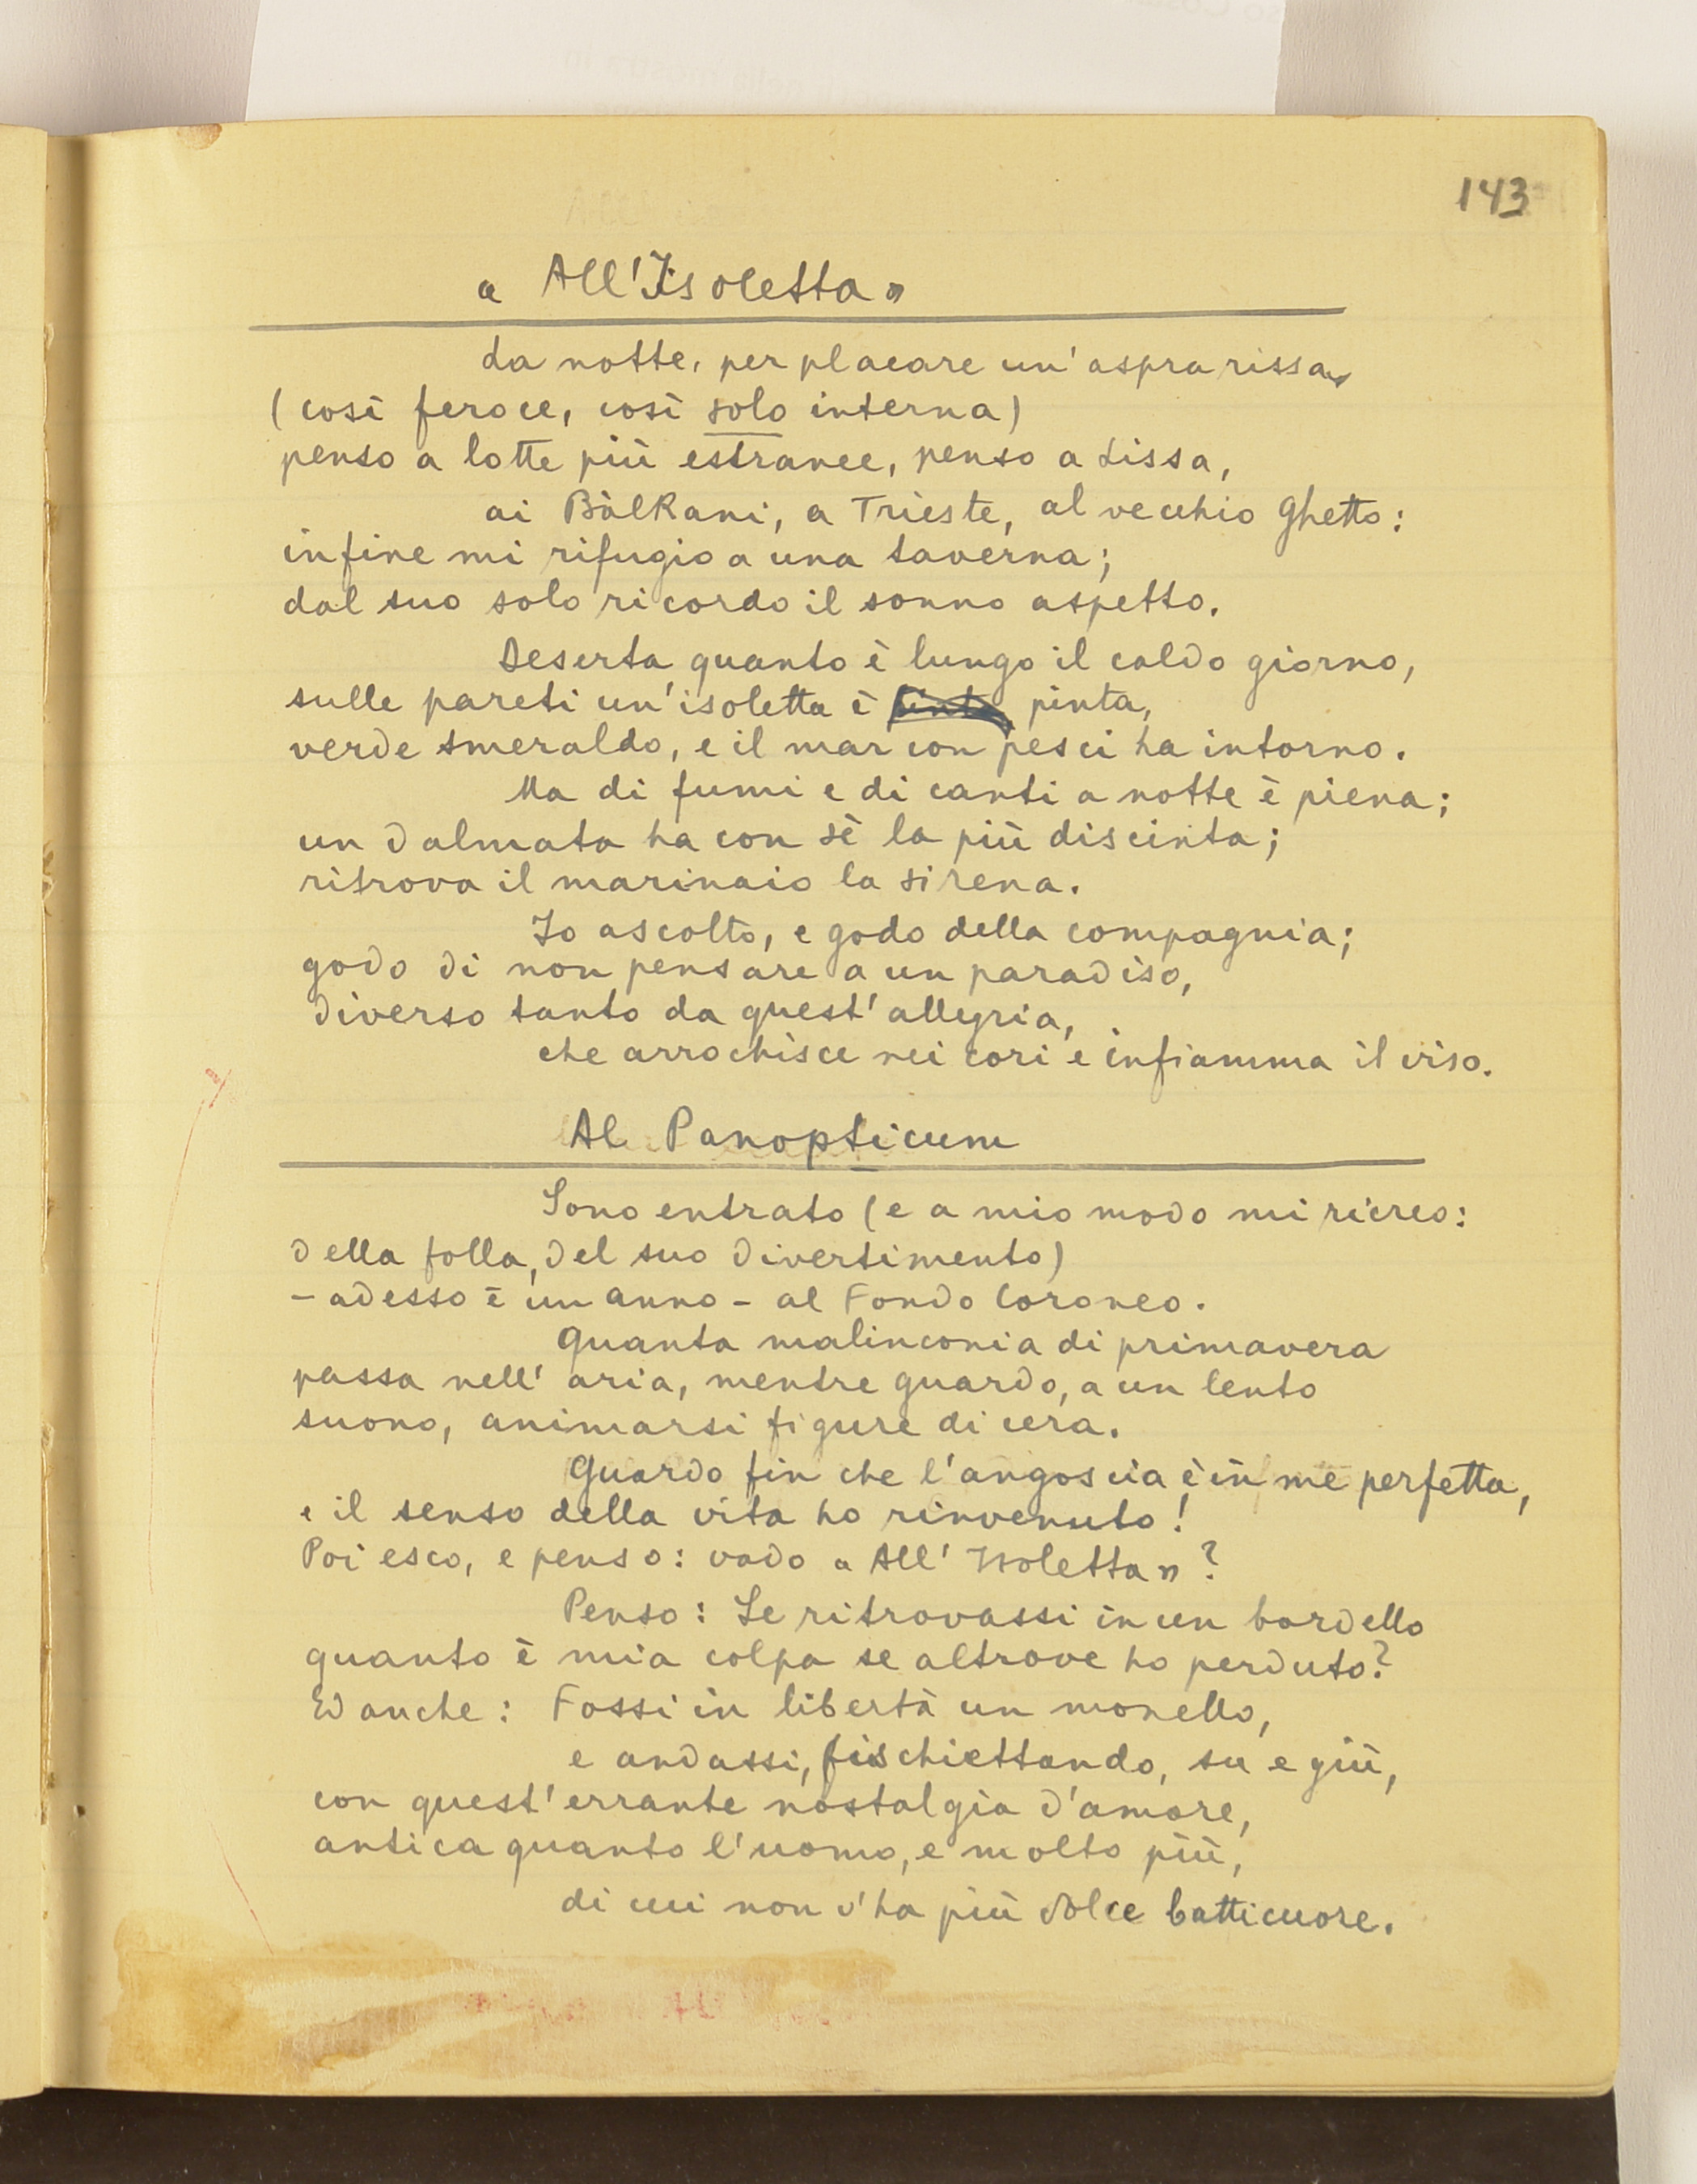 143
« All'Isoletta »
La notte, per placare un'aspra rissa
(così feroce, così solo interna)
penso a lotte più estranee, penso a Lissa,
ai Bàlkani, a Trieste, al vecchio Ghetto:
infine mi rifugio a una taverna;
dal suo solo ricordo il sonno aspetto.
Deserta quanto è lungo il caldo giorno,
sulle pareti un'isoletta è pinta,
verde smeraldo, e il mar con pesci ha intorno.
Ma di fumi e di canti a notte è piena;
un dalmata ha con sè la più discinta;
ritrova il marinaio la sirena.
Io ascolto, e godo della compagnia;
godo di non pensare a un paradiso,
diverso tanto da quest'allegria,
che arrochisce nei cori e infiamma il viso.
Al Panopticum
Sono entrato (e a mio modo mi ricreo:
della folla, del suo divertimento)
- adesso è un anno - al Fondo Coroneo.
Quanta malinconia di primavera
passa nell' aria, mentre guardo, a un lento
suono, animarsi figure di cera.
Guardo fin che l'angoscia è in me perfetta,
e il senso della vita ho rinvenuto!
Poi esco, e penso: vado « All' Isoletta »?
Penso: Se ritrovassi in un bordello
quanto è mia colpa se altrove ho perduto?
Ed anche: Fossi in libertà un monello,
e andassi, fischiettando, su e giù,
con quest'errante nostalgia d'amore,
antica quanto l'uomo, e molto più,
di cui non v'ha più dolce batticuore.